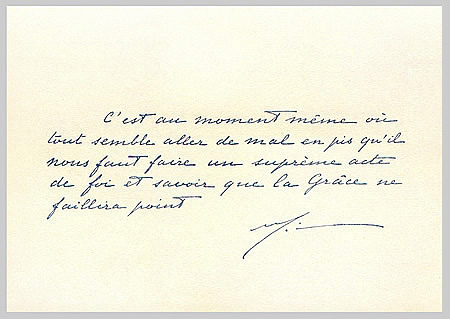 C'est au moment même où
tout semble aller de mal en pis qu'il
nous faut faire un suprême acte
de foi et savoir que la Grâce ne
faillira point